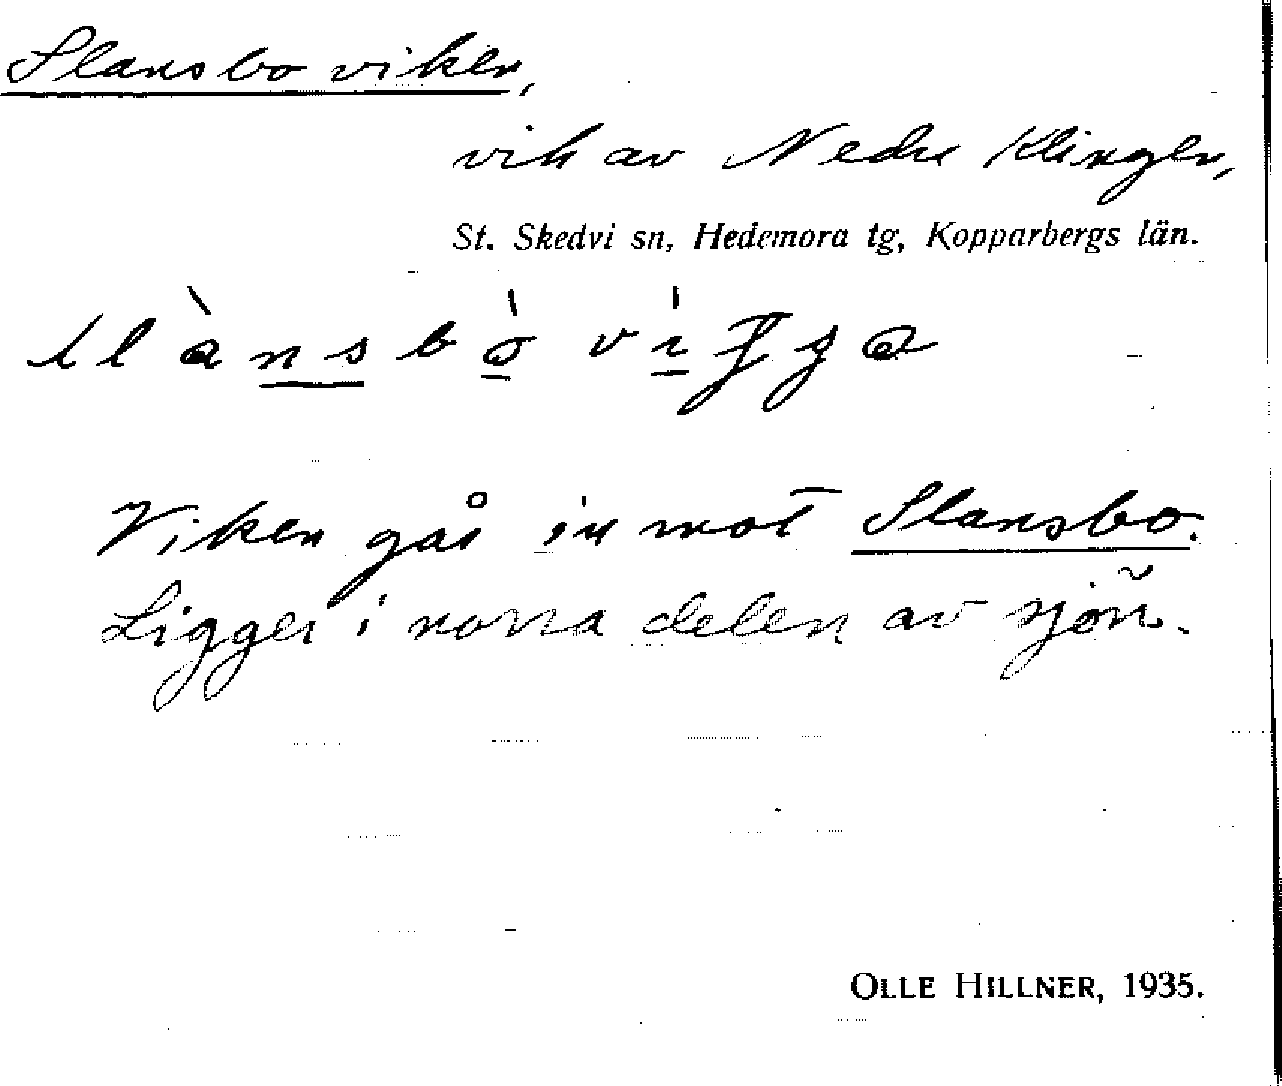 Slansboviken,
vik av Nedre Klingen,
St. Skedvi sn, Hedemora tg, Kopparbergs län.
Viken går in mot Slansbo.
Ligger i norra delen av sjön.
OLLE HILLNER, 1935.